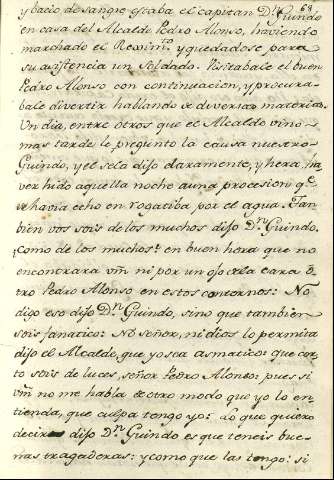 68
y vacio de sangre estaba el capitan D.n Guindo
en casa del Alcalde Pedro Alonso, haviendo
marchado el Rexim.to y quedadose para
su asistencia un soldado. Visitabale el buen
Pedro Alonso con continuacion, y procura-
bale divertir hablando de diversas materias.
Un dia, entre otros que el Alcalde vino
mas tarde le pregunto la causa nuestro
Guindo, y el se la dijo claramente, y hera, ha-
ver hido aquella noche a una procesion q.e
se havia echo en rogatiba por el agua. Tan-
bien vos sois de los muchos dijo D.n Guindo,
¿como de los muchos? en buen hora que no
encontrara vm̃ ni por un ojo de la cara o-
tro Pedro Alonso en estos contornos: No
digo eso dijo D.n Guindo, sino que tambien
sois fanatico: No señor, ni dios lo permita
dijo el Alcalde, que yo sea asmatico: que cor-
to sois de luces, señor Pedro Alonso: pues si
vm̃ no me habla de otro modo que yo lo en-
tienda, que culpa tengo yo: Lo que quiero
decir dijo D.n Guindo es que teneis bue-
nas tragaderas: y como que las tengo: si